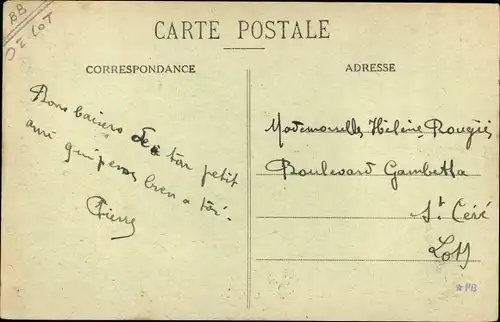 BB
02 LOT
CARTE POSTALE
CORRESPONDANCE
Bons baisers de ton petit
ami qui pense bien a toi.
Pierre
ADRESSE
Mademoiselle Hélène Rougié
Boulevard Gambetta
St. Céré
Lot
*PB